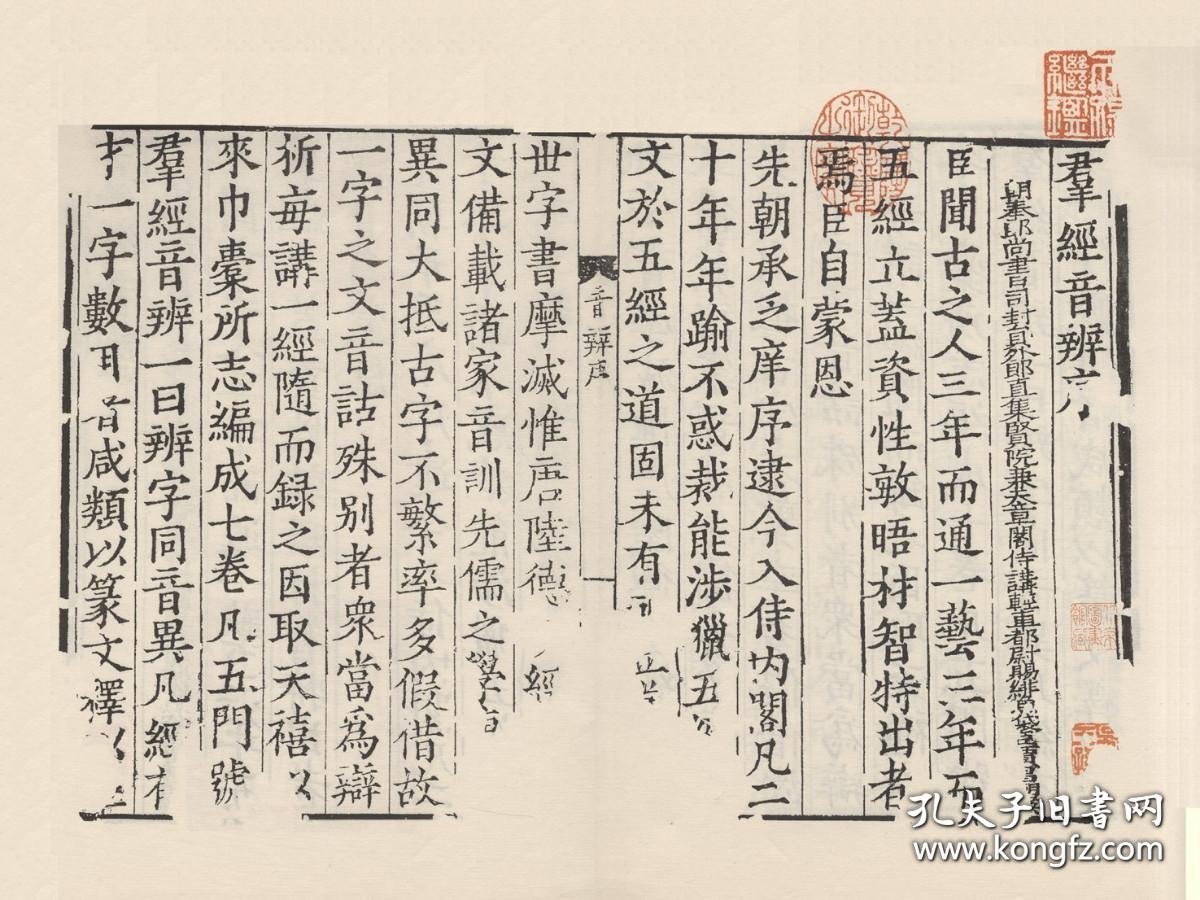 羣經音辨序
朝奉郎尚書司封員外郎直集賢院兼天章閣侍講輕車都尉賜緋魚袋
臣聞古之人三年而通一藝三年而
五經立蓋資性敏晤材智特出者
焉臣自蒙恩
先朝承乏庠序逮今入侍内閣凡二
十年年踰不惑裁能涉獵五
文於五經之道固未有
音辨序
世字書摩滅惟唐陸德 經
文備載諸家音訓先儒之學
異同大抵古字不繁率多假借故
一字之文音詁殊别者衆當爲辯
析每講一經隨而録之因取天禧以
來巾橐所志編成七卷凡五門號
羣經音辨一曰辨字同音異凡經有
一字數用者咸類以篆文釋以
孔夫子旧书网
www.kongfz.com